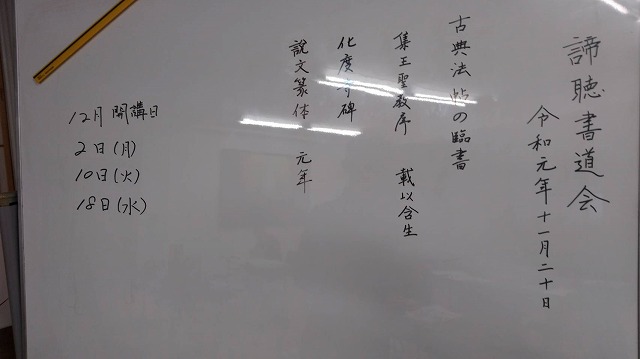 諦聴書道会
令和元年十一月二十日
古典法帖の臨書
集王聖教序 載以含生
化度寺碑
説文篆体 元年
12月 開講日
2日(月)
10日(火)
18日(水)